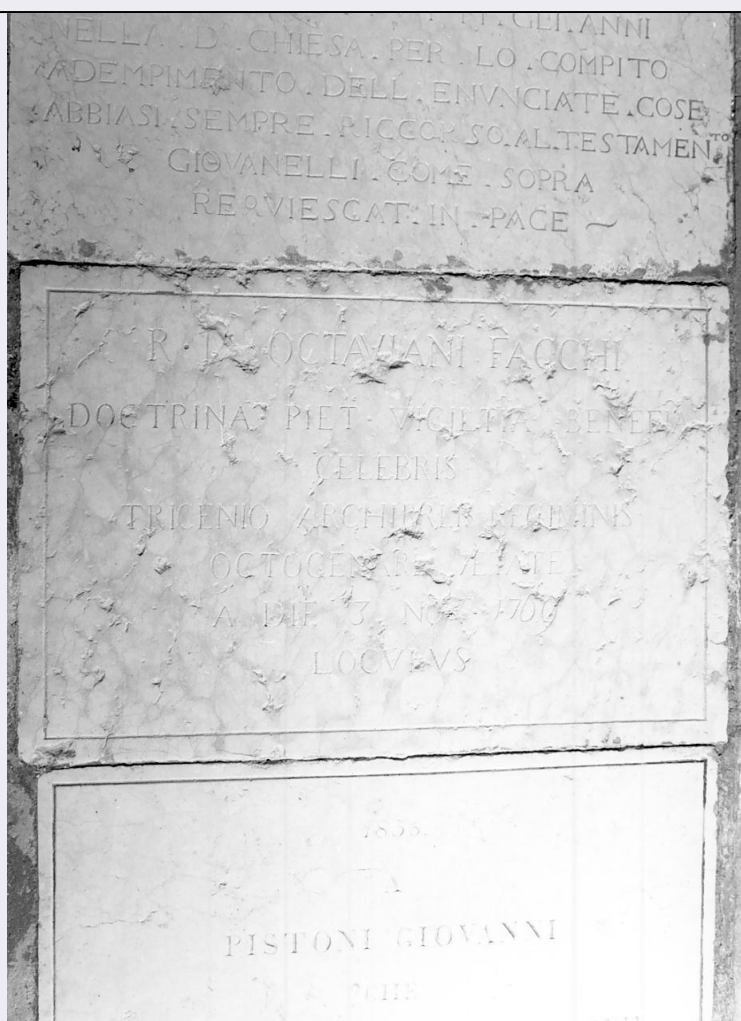 GLI . ANNI
NELLA . D . CHIESA . PER . LO . COMPITO
ADEMPIMENTO . DELL . ENVNCIATE . COSE
ABBIASI . SEMPRE . RICCORSO . AL . TESTAMEN.TO
GIOVANELLI . COME . SOPRA
REQVIESCAT . IN . PACE ~
R. D. OCTAVIANI FACCHI
DOCTRINA PIET
CELEBRIS
TRICENIO REGIMINIS
A DIE 3 1769
LOCVLVS
PISTONI GIOVANNI